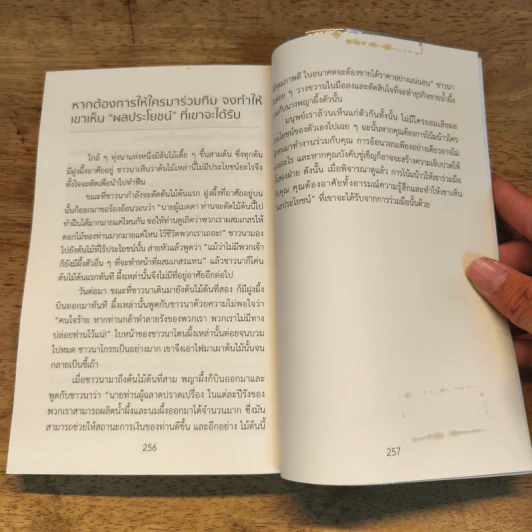 หากต้องการให้ใครมาร่วมทีม จงทำให้
เขาเห็น "ผลประโยชน์" ที่เขาจะได้รับ
ใกล้ ๆ ทุ่งนาแห่งหนึ่งมีต้นไม้เตี้ย ๆ ขึ้นสามต้น ซึ่งทุกต้น
มีผึ้งอาศัยอยู่ ชาวนาเห็นว่าต้นไม้เหล่านี้ไม่มีประโยชน์อะไรจึง
ตั้งใจจะตัดเพื่อนำไปทำฟืน
ขณะที่ชาวนากำลังจะตัดต้นไม้ต้นแรก ฝูงผึ้งที่อาศัยอยู่บน
นั้นก็ออกมาขอร้องอ้อนวอนว่า "ท่านผู้เมตตา ท่านจะตัดไม้นี้ไป
ทำฟืนได้มากมายแค่ไหนกัน ขอให้ท่านดูเถิดว่าพวกเราผสมเกสรให้
ดอกไม้ของท่านมากมายแค่ไหน ไว้ชีวิตพวกเราเถอะ!" ชาวนามอง
ไปยังต้นไม้ที่ไร้ประโยชน์นั้น ส่ายหัวแล้วพูดว่า "แม้ว่าไม่มีพวกเจ้า
ก็ยังมีผึ้งตัวอื่น ๆ ที่จะทำหน้าที่ผสมเกสรแทน" แล้วชาวนาก็โค่น
ต้นไม้ต้นแรกทันที ผึ้งเหล่านั้นจึงไม่มีที่อยู่อาศัยอีกต่อไป
วันต่อมา ขณะที่ชาวนาเดินมายังต้นไม้ต้นที่สอง ก็มีฝูงผึ้ง
บินออกมาทันที ผึ้งเหล่านั้นพูดกับชาวนาด้วยความไม่พอใจว่า
"คนใจร้าย หากท่านกล้าทำลายรังของพวกเรา พวกเราไม่มีทาง
ปล่อยท่านไว้แน่!" ใบหน้าของชาวนาโดนผึ้งเหล่านั้นต่อยจนบวม
ไปหมด ชาวนาโกรธเป็นอย่างมาก เขาจึงเอาไฟมาเผาต้นไม้นั้นจน
กลายเป็นขี้เถ้า
เมื่อชาวนามาถึงต้นไม้ต้นที่สาม พญาผึ้งก็บินออกมาและ
พูดกับชาวนาว่า "นายท่านผู้ฉลาดปราดเปรื่อง ในแต่ละปีรังของ
พวกเราสามารถผลิตน้ำผึ้งและนมผึ้งออกมาได้จำนวนมาก ซึ่งมัน
สามารถช่วยให้สถานะการเงินของท่านดีขึ้น และอีกอย่าง ไม้ต้นนี้
256
คุณภาพดี ในอนาคตจะต้องขายได้ราคาอย่างแน่นอน" ชาวนา
ๆ วางขวานในมือลงและตัดสินใจที่จะทำธุรกิจขายน้ำผึ้ง
นางพญาผึ้งตัวนั้น
มนุษย์เราล้วนเห็นแก่ตัวกันทั้งนั้น ไม่มีใครยอมเสียผล
ของตัวเองไปเฉย ๆ ฉะนั้นหากคุณต้องการโน้มน้าวใคร
มาทำงานร่วมกับคุณ การอ้อนวอนเพียงอย่างเดียวอาจไม่
อะไร และหากคุณบังคับขู่เข็ญก็อาจจะสร้างความเจ็บปวดให้
ฝ่าย ดังนั้น เมื่อพิจารณาดูแล้ว การโน้มน้าวให้เขาร่วมมือ
คุณ คุณต้องอาศัยทั้งอารมณ์ความรู้สึกและทำให้เขาเห็น
ผลประโยชน์" ที่เขาจะได้รับจากการร่วมมือนั้นด้วย
257